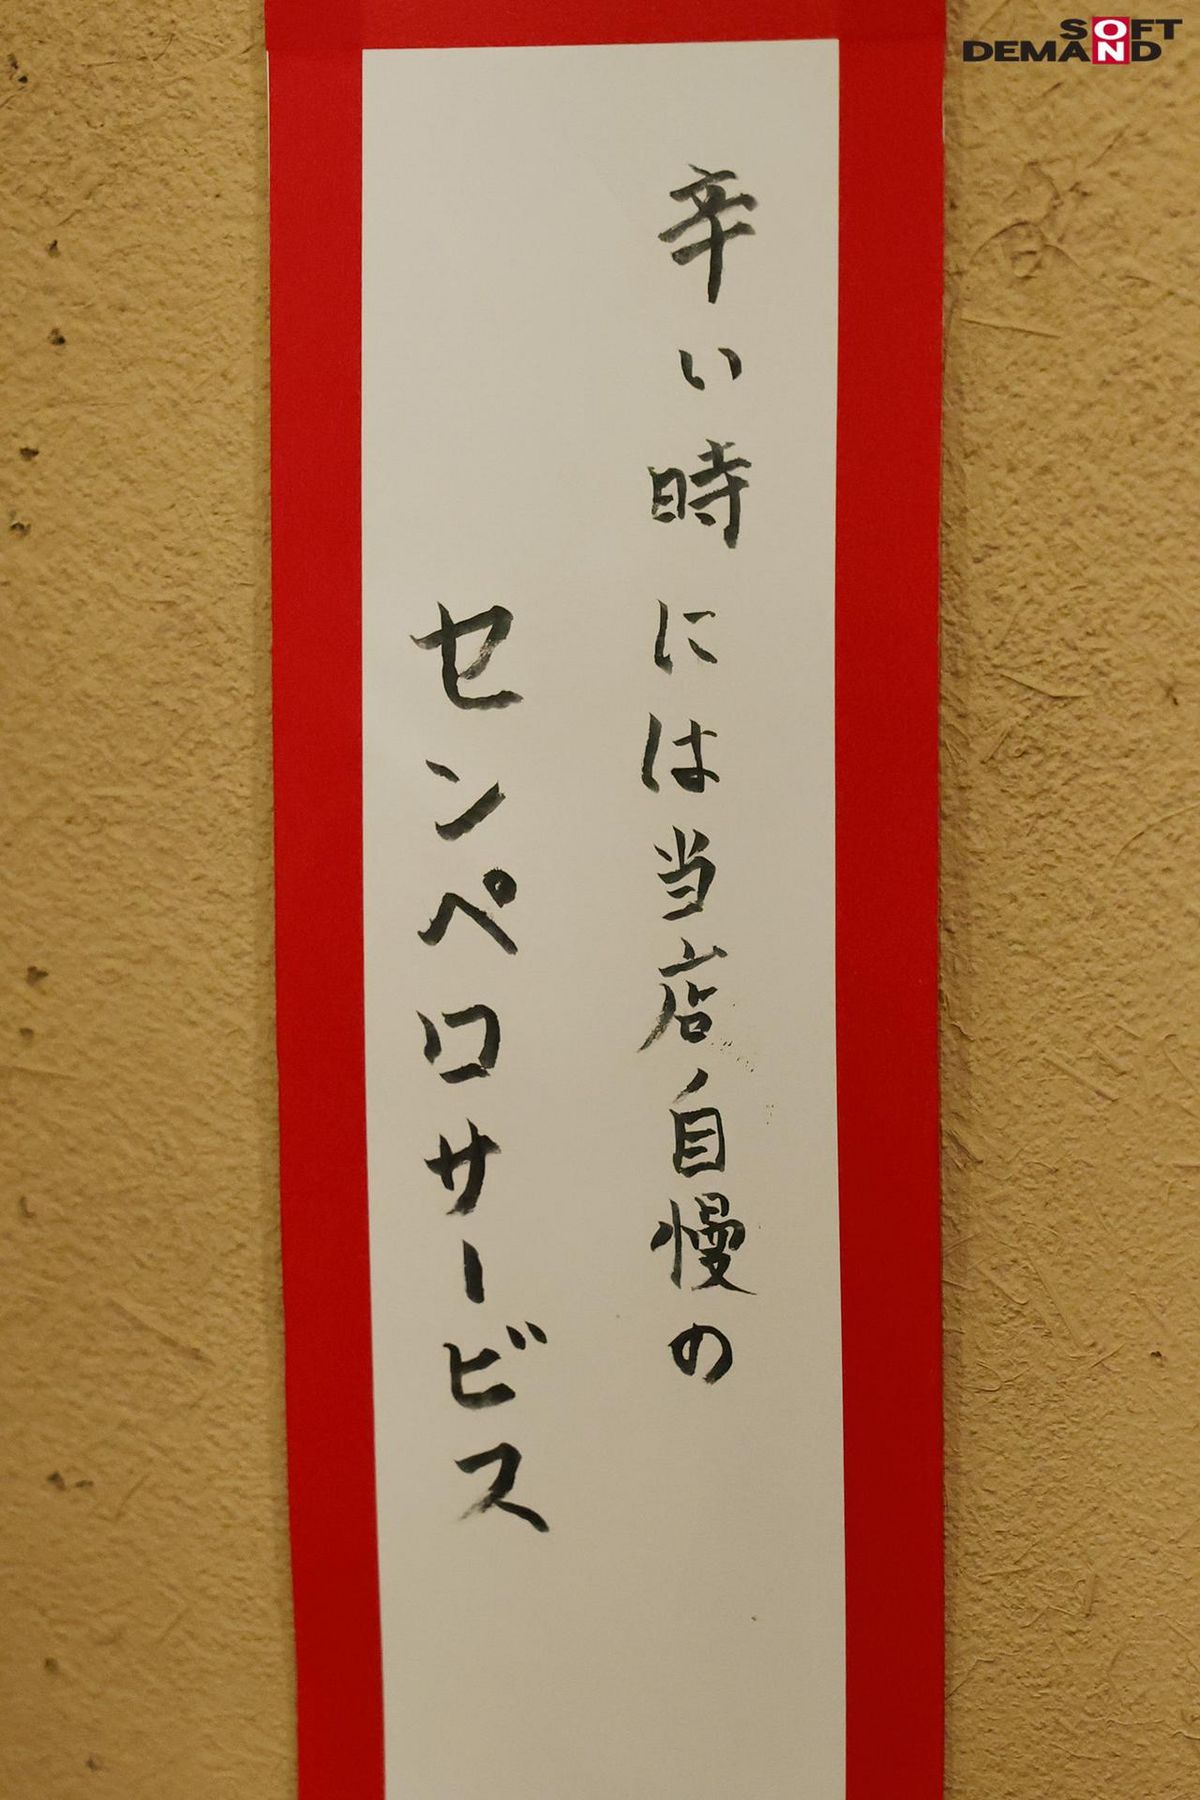 辛い時には当店自慢の
センペロサービス
SOFT
DEMAND